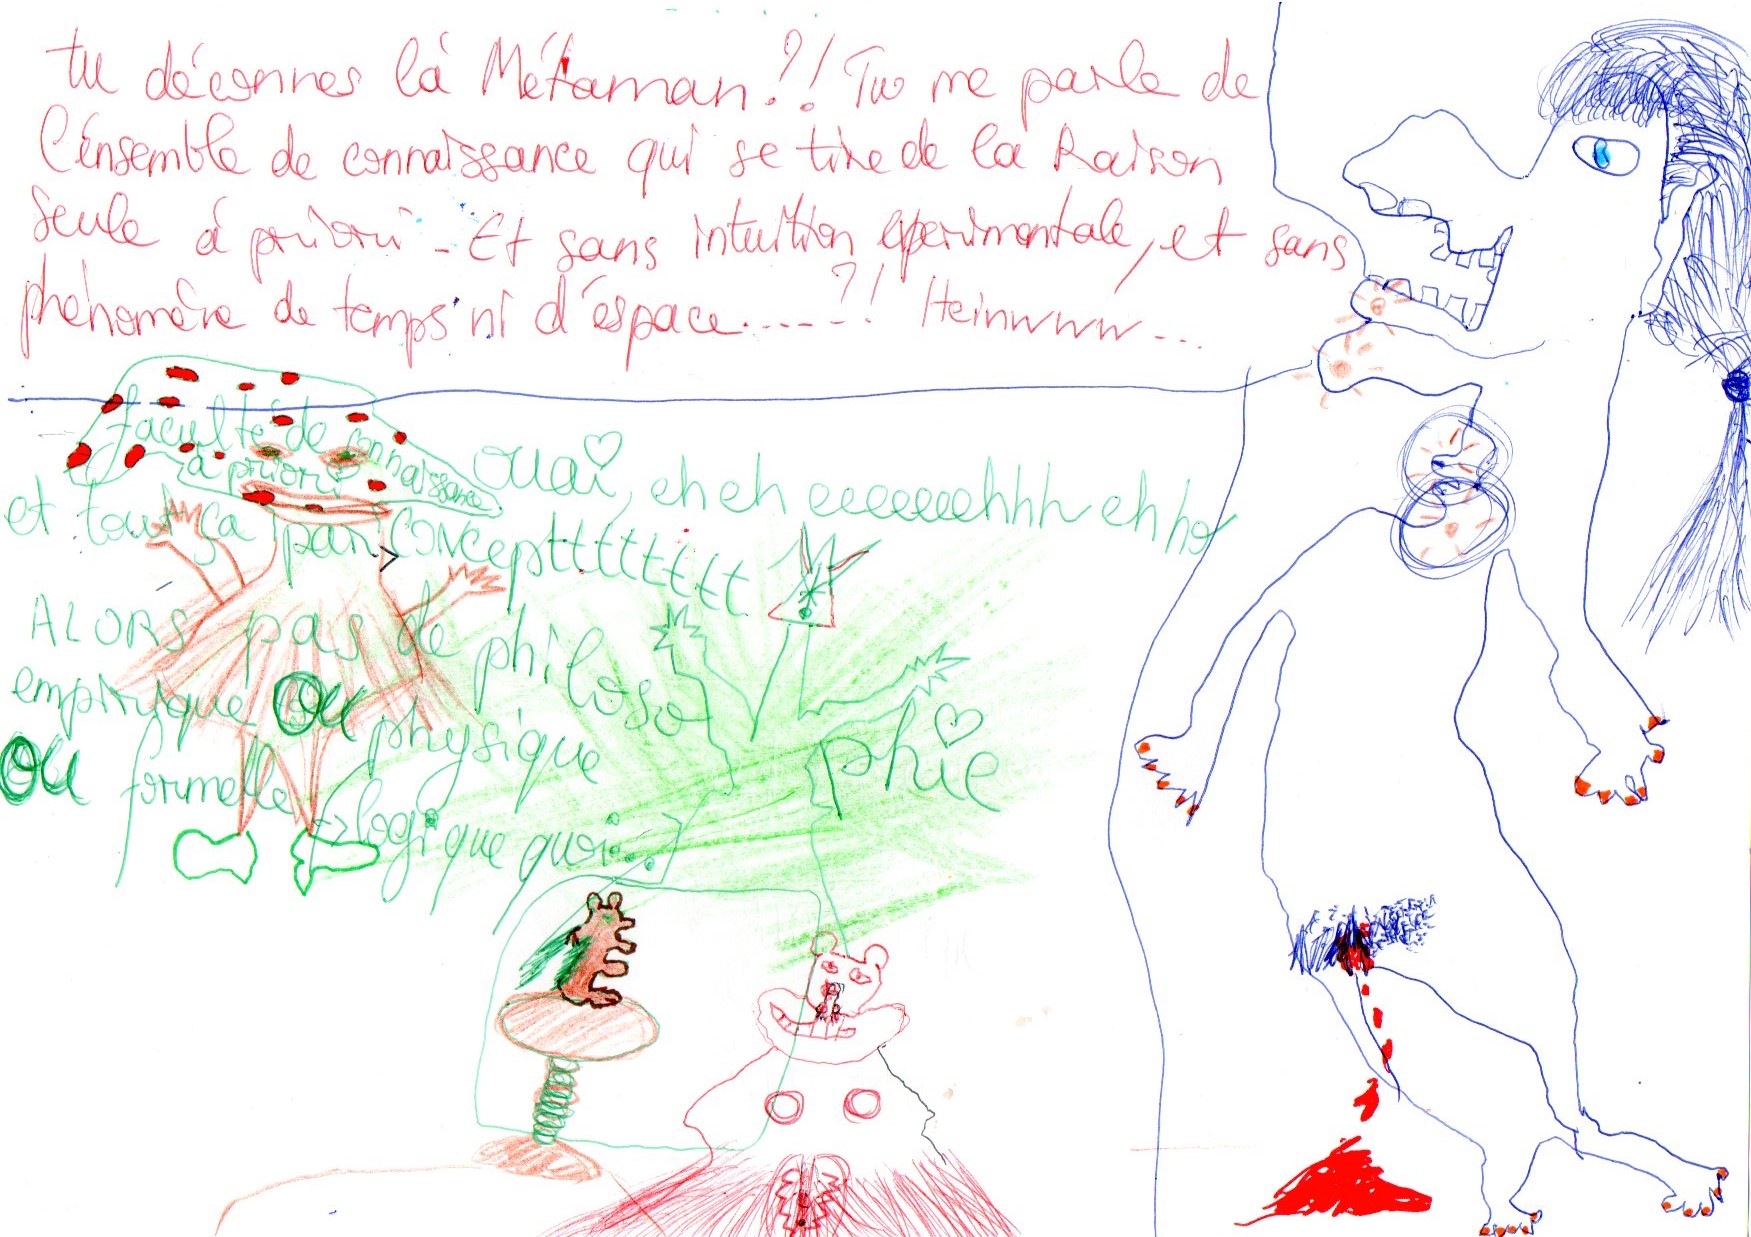 tu déconnes là Métaman?! Tu me parle de
l'énsemble de connaissance qui se tire de la Raison
seule à priori - Et sans intuition eperimentale, et sans
phénomène de temps ni d'éspace.....?! Heinwww...
faculté de connaissance
à priori
ouai, eh eh eeeeeeehhh eh ho
et tout ça par conceptttttttt
ALORS pas de philoso phie
empirique ou physique
ou formelle logique quoi...